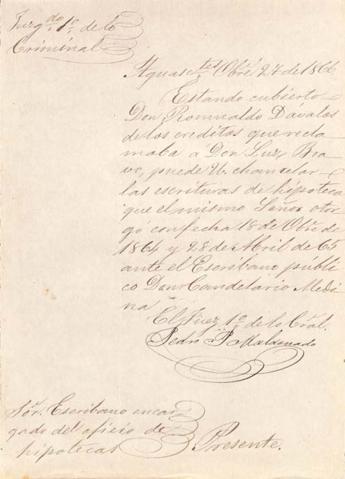 Juzgdo. 1º. de lo
Criminal
Aguasctes. Obre. 27 de 1866
Estando cubierto
Don Romualdo Dávalos
de los creditos que recla
maba á Don Luz Bra
vo, puede U. chancelar
las escrituras de hipoteca
que el mismo Señor otor
gó con fecha 18 de Obre. de
1864 y 28 de Abril de 65
ante el Escribano públi
co Don Candelario Medi
na.
El Juez 1º. de lo Cral.
Pedro P. Maldonado
Sor. Escribano encar
gado del oficio de
hipotecas Presente.